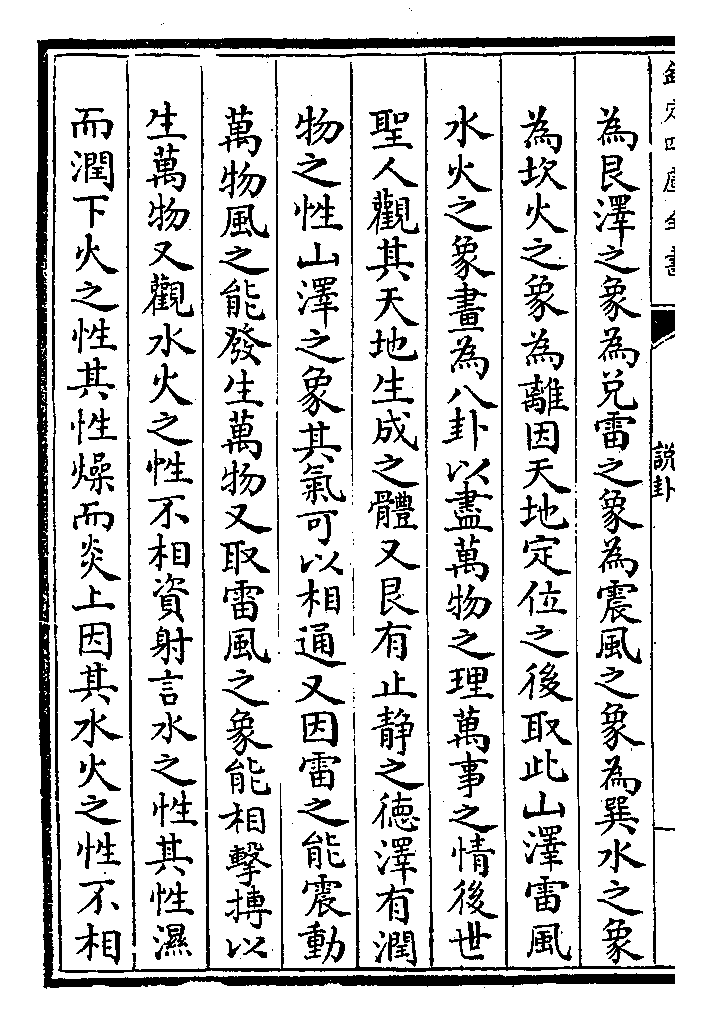 欽定四庫全書
說卦
為艮澤之象為兌雷之象為震風之象為巽水之象
為坎火之象為離因天地定位之後取此山澤雷風
水火之象畫為八卦以盡萬物之理萬事之情後世
聖人觀其天地生成之體又艮有止静之德澤有潤
物之性山澤之象其氣可以相通又因雷之能震動
萬物風之能發生萬物又取雷風之象能相擊搏以
生萬物又觀水火之性不相資射言水之性其性濕
而潤下火之性其性燥而炎上因其水火之性不相